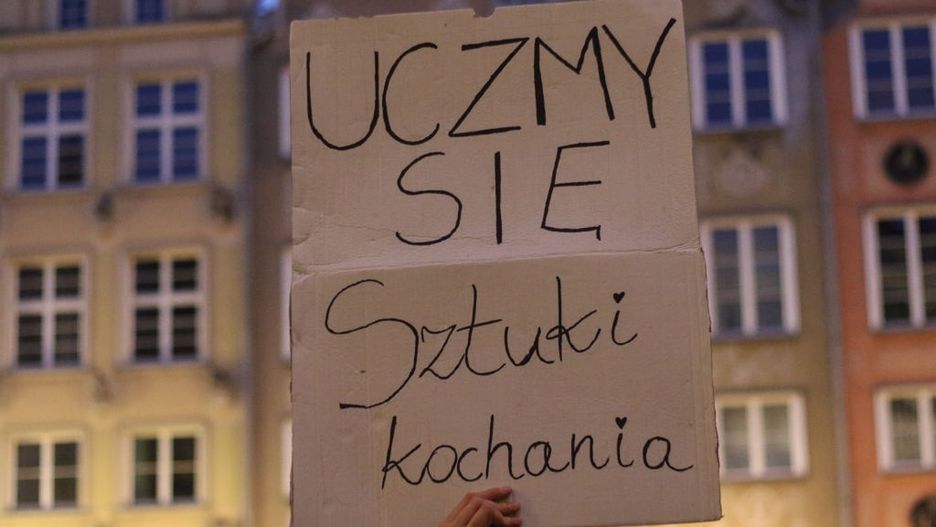 UCZMY
SIĘ
Sztuki
kochania